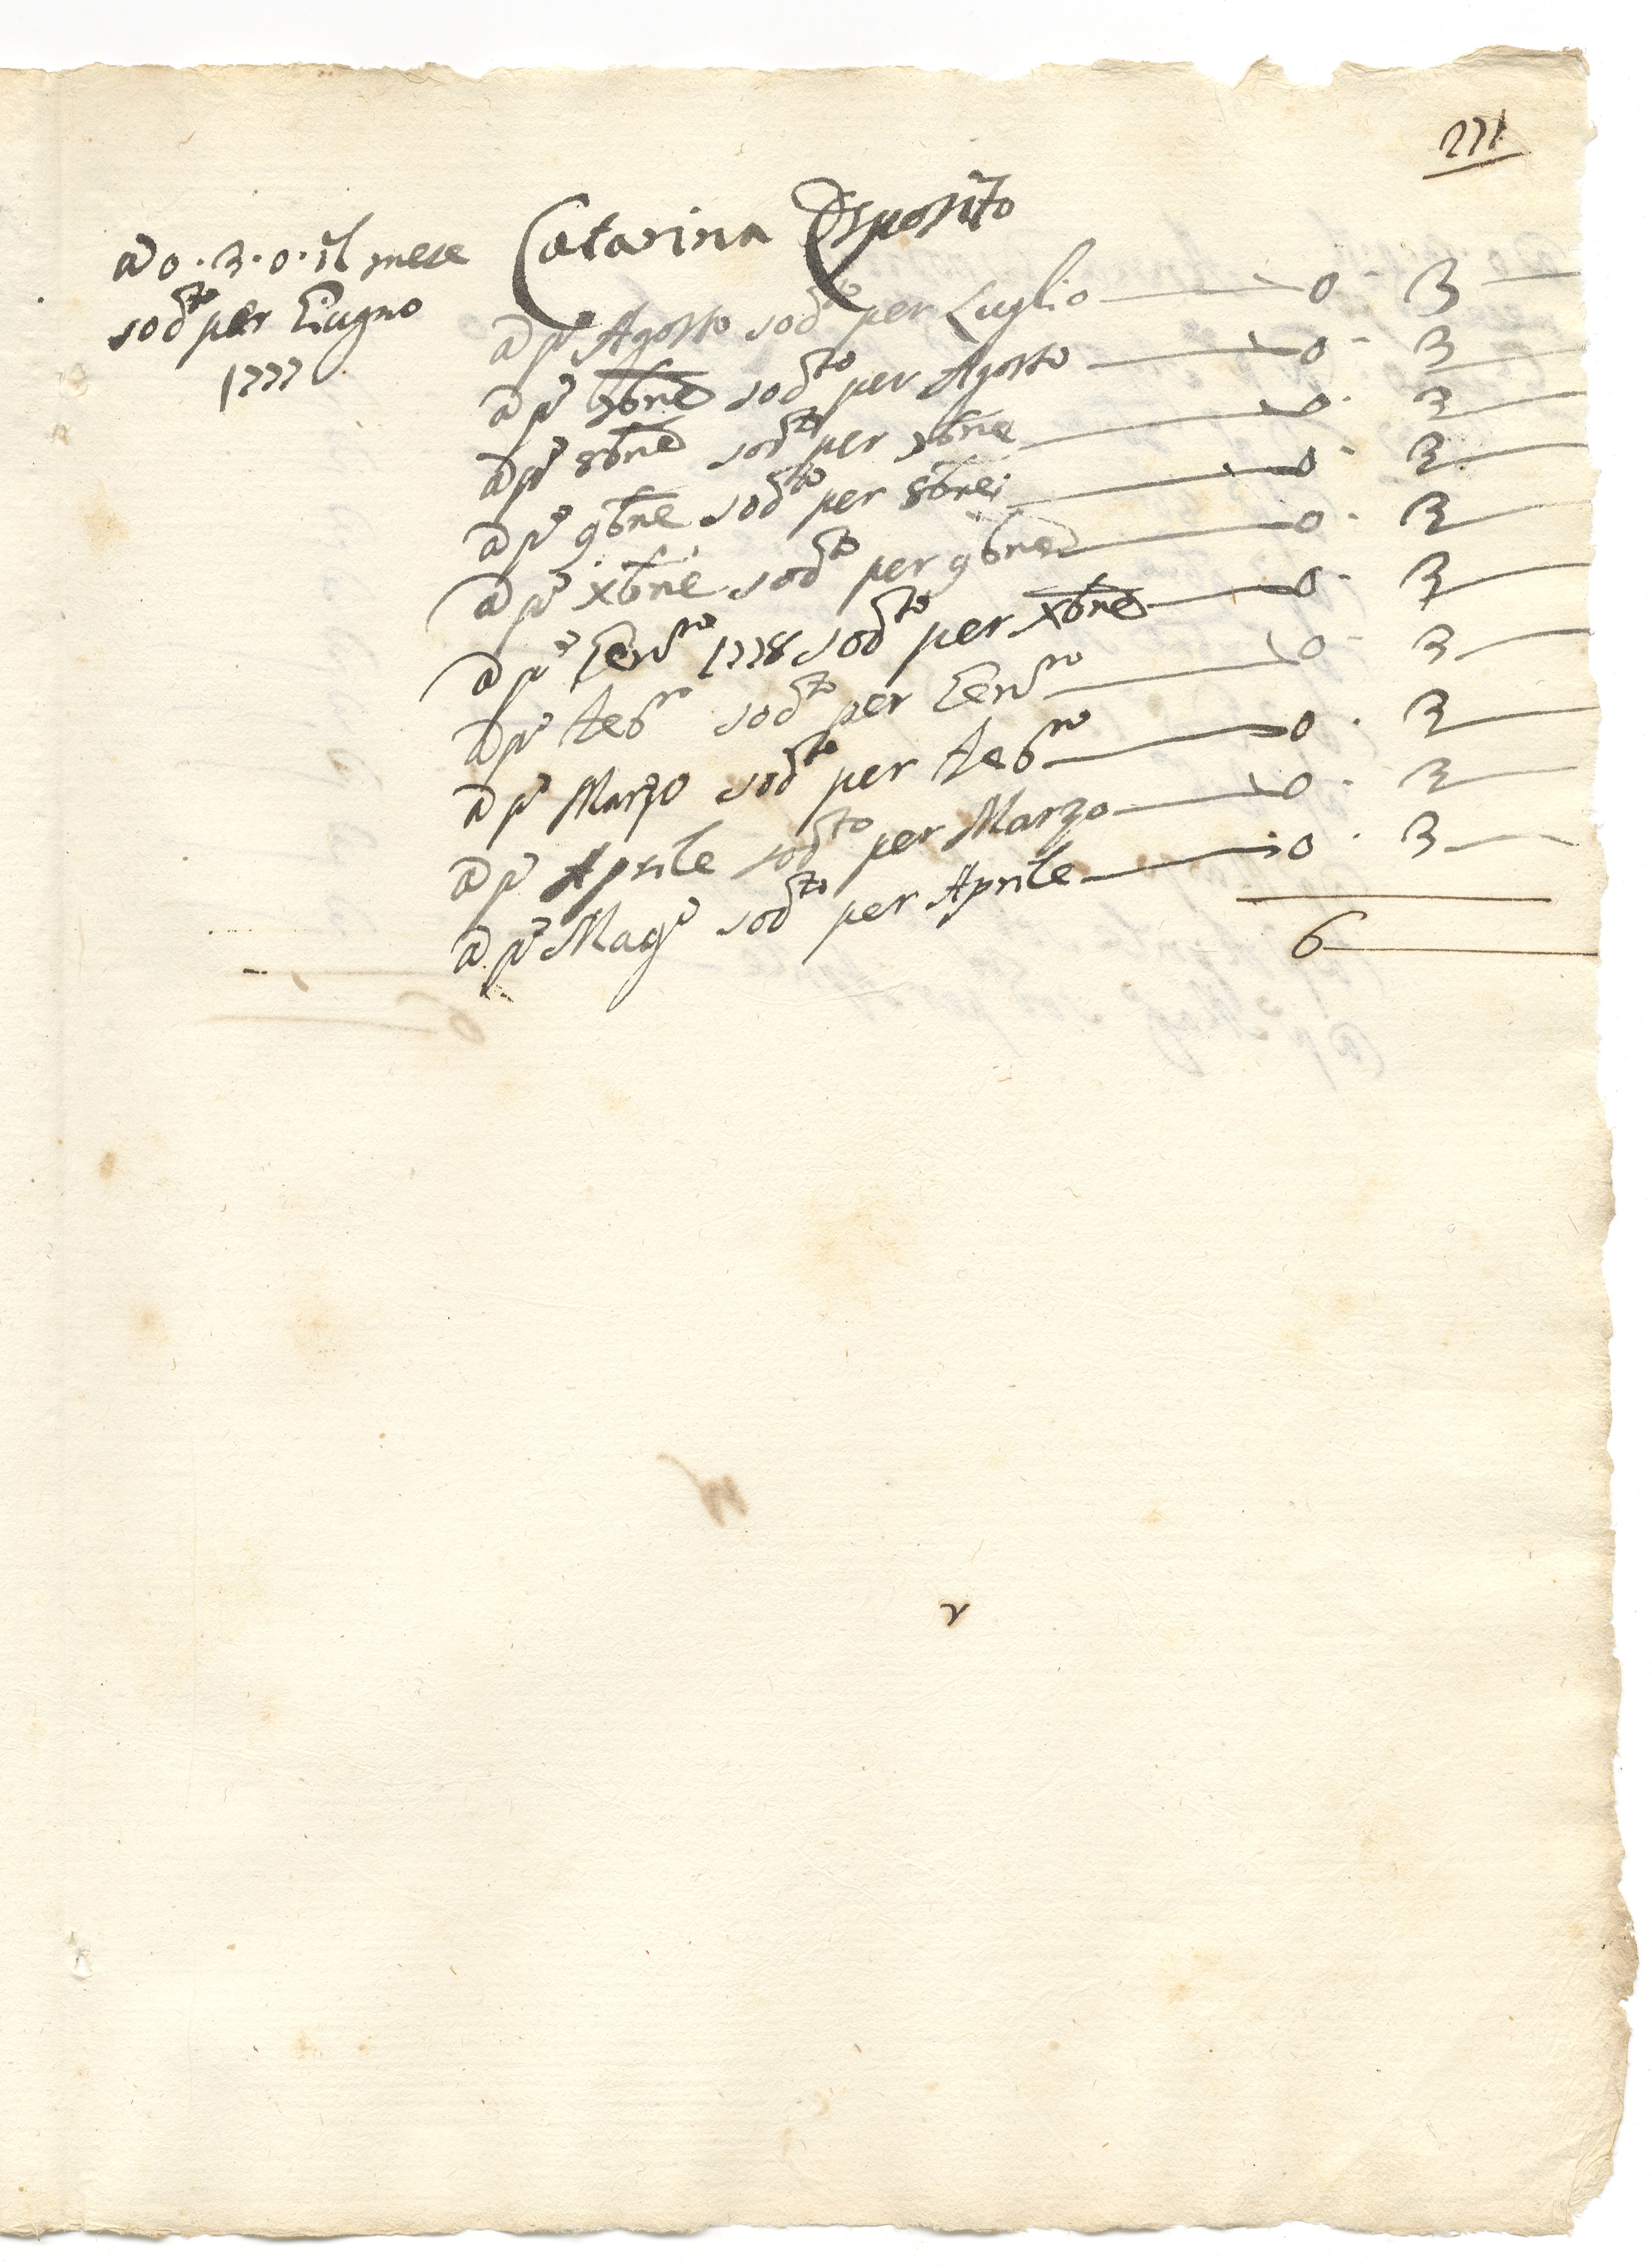 271
Catarina Esposito
a 0.3.0. il mese
sod.to per Giugno
1777
a p.o Agosto sod.to per Luglio — 0 . 3 —
a p.o 7bre sod.to per Agosto — 0 . 3 —
a p.o 8bre sod.to per 7bre — 0 . 3 —
a p.o 9bre sod.to per 8bre — 0 . 3 —
a p.o Xbre sod.to per 9bre — 0 . 3 —
a p.o Gen.ro 1778 sod.to per Xbre — 0 . 3 —
a p.o Feb.ro sod.to per Gen.ro — 0 . 3 —
a p.o Marzo sod.to per Feb.ro — 0 . 3 —
a p.o Aprile sod.to per Marzo — 0 . 3 —
a p.o Mag.o sod.to per Aprile — 0 . 3 —
6 —